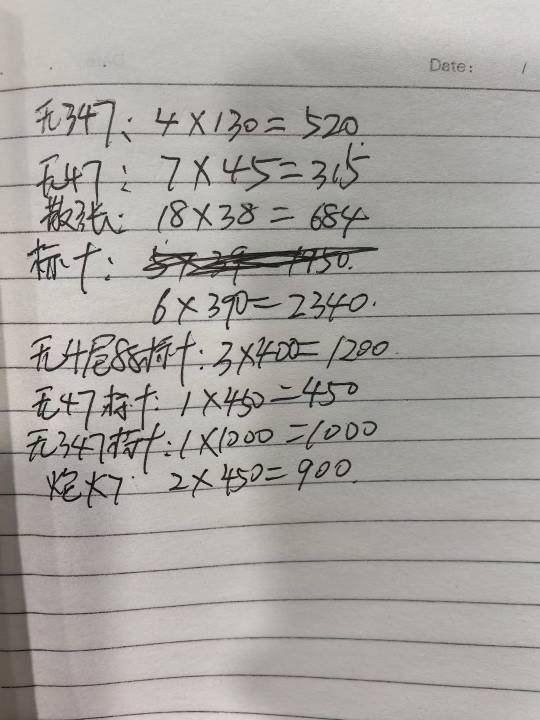 Date: /
无347: 4×130=520
无47: 7×45=315
散张: 18×38=684
标十:
6×390=2340.
无4尾88标十: 3×400=1200.
无47标十: 1×450=450
无347标十: 1×1000=1000
炮火7: 2×450=900.